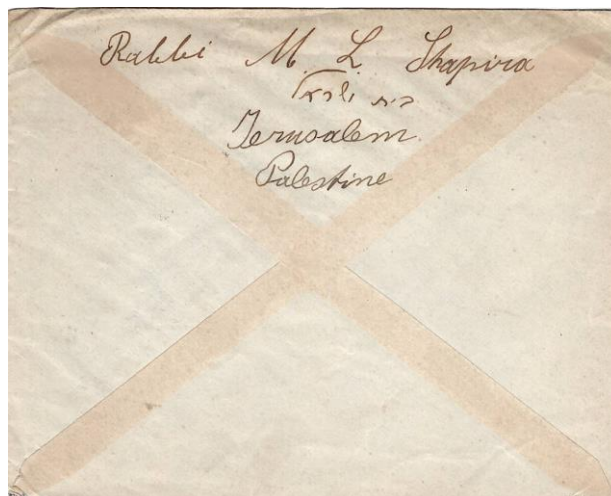 Rabbi M. L. Shapira
בית ישראל
Jerusalem.
Palestine